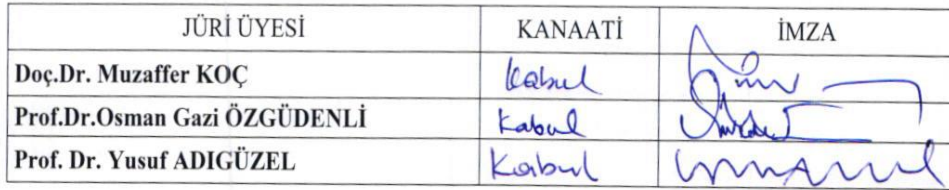 JÜRİ ÜYESİ KANAATİ İMZA
Doç.Dr. Muzaffer KOÇ Kabul
Prof.Dr.Osman Gazi ÖZGÜDENLİ Kabul
Prof. Dr. Yusuf ADIGÜZEL Kabul